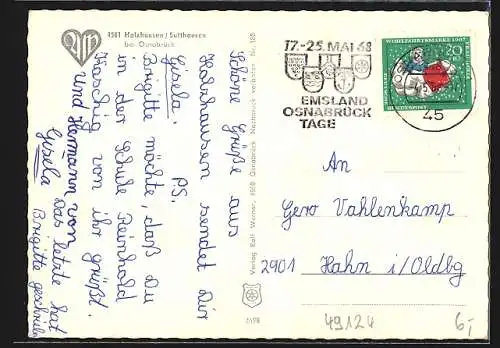 4501 Holzhausen / Sutthausen
bei Osnabrück
Schöne Grüße aus
Holzhausen sendet Dir
Gisela.
PS.
Brigitte möchte, daß Du
in der Schule Reinhold
Raschig von ihr grüßt.
und Hermann von
Gisela
Das letzte hat
Brigitte geschrieben
Verlag Ralf Werner, 4500 Osnabrück Nachdruck verboten Nr. 188
2498
17.-25. MAI 68
EMSLAND
OSNABRÜCK
TAGE
WOHLFAHRTSMARKE 1967
20
45
An
Gero Vahlenkamp
2901 Hahn i/Oldbg
49124
6,-